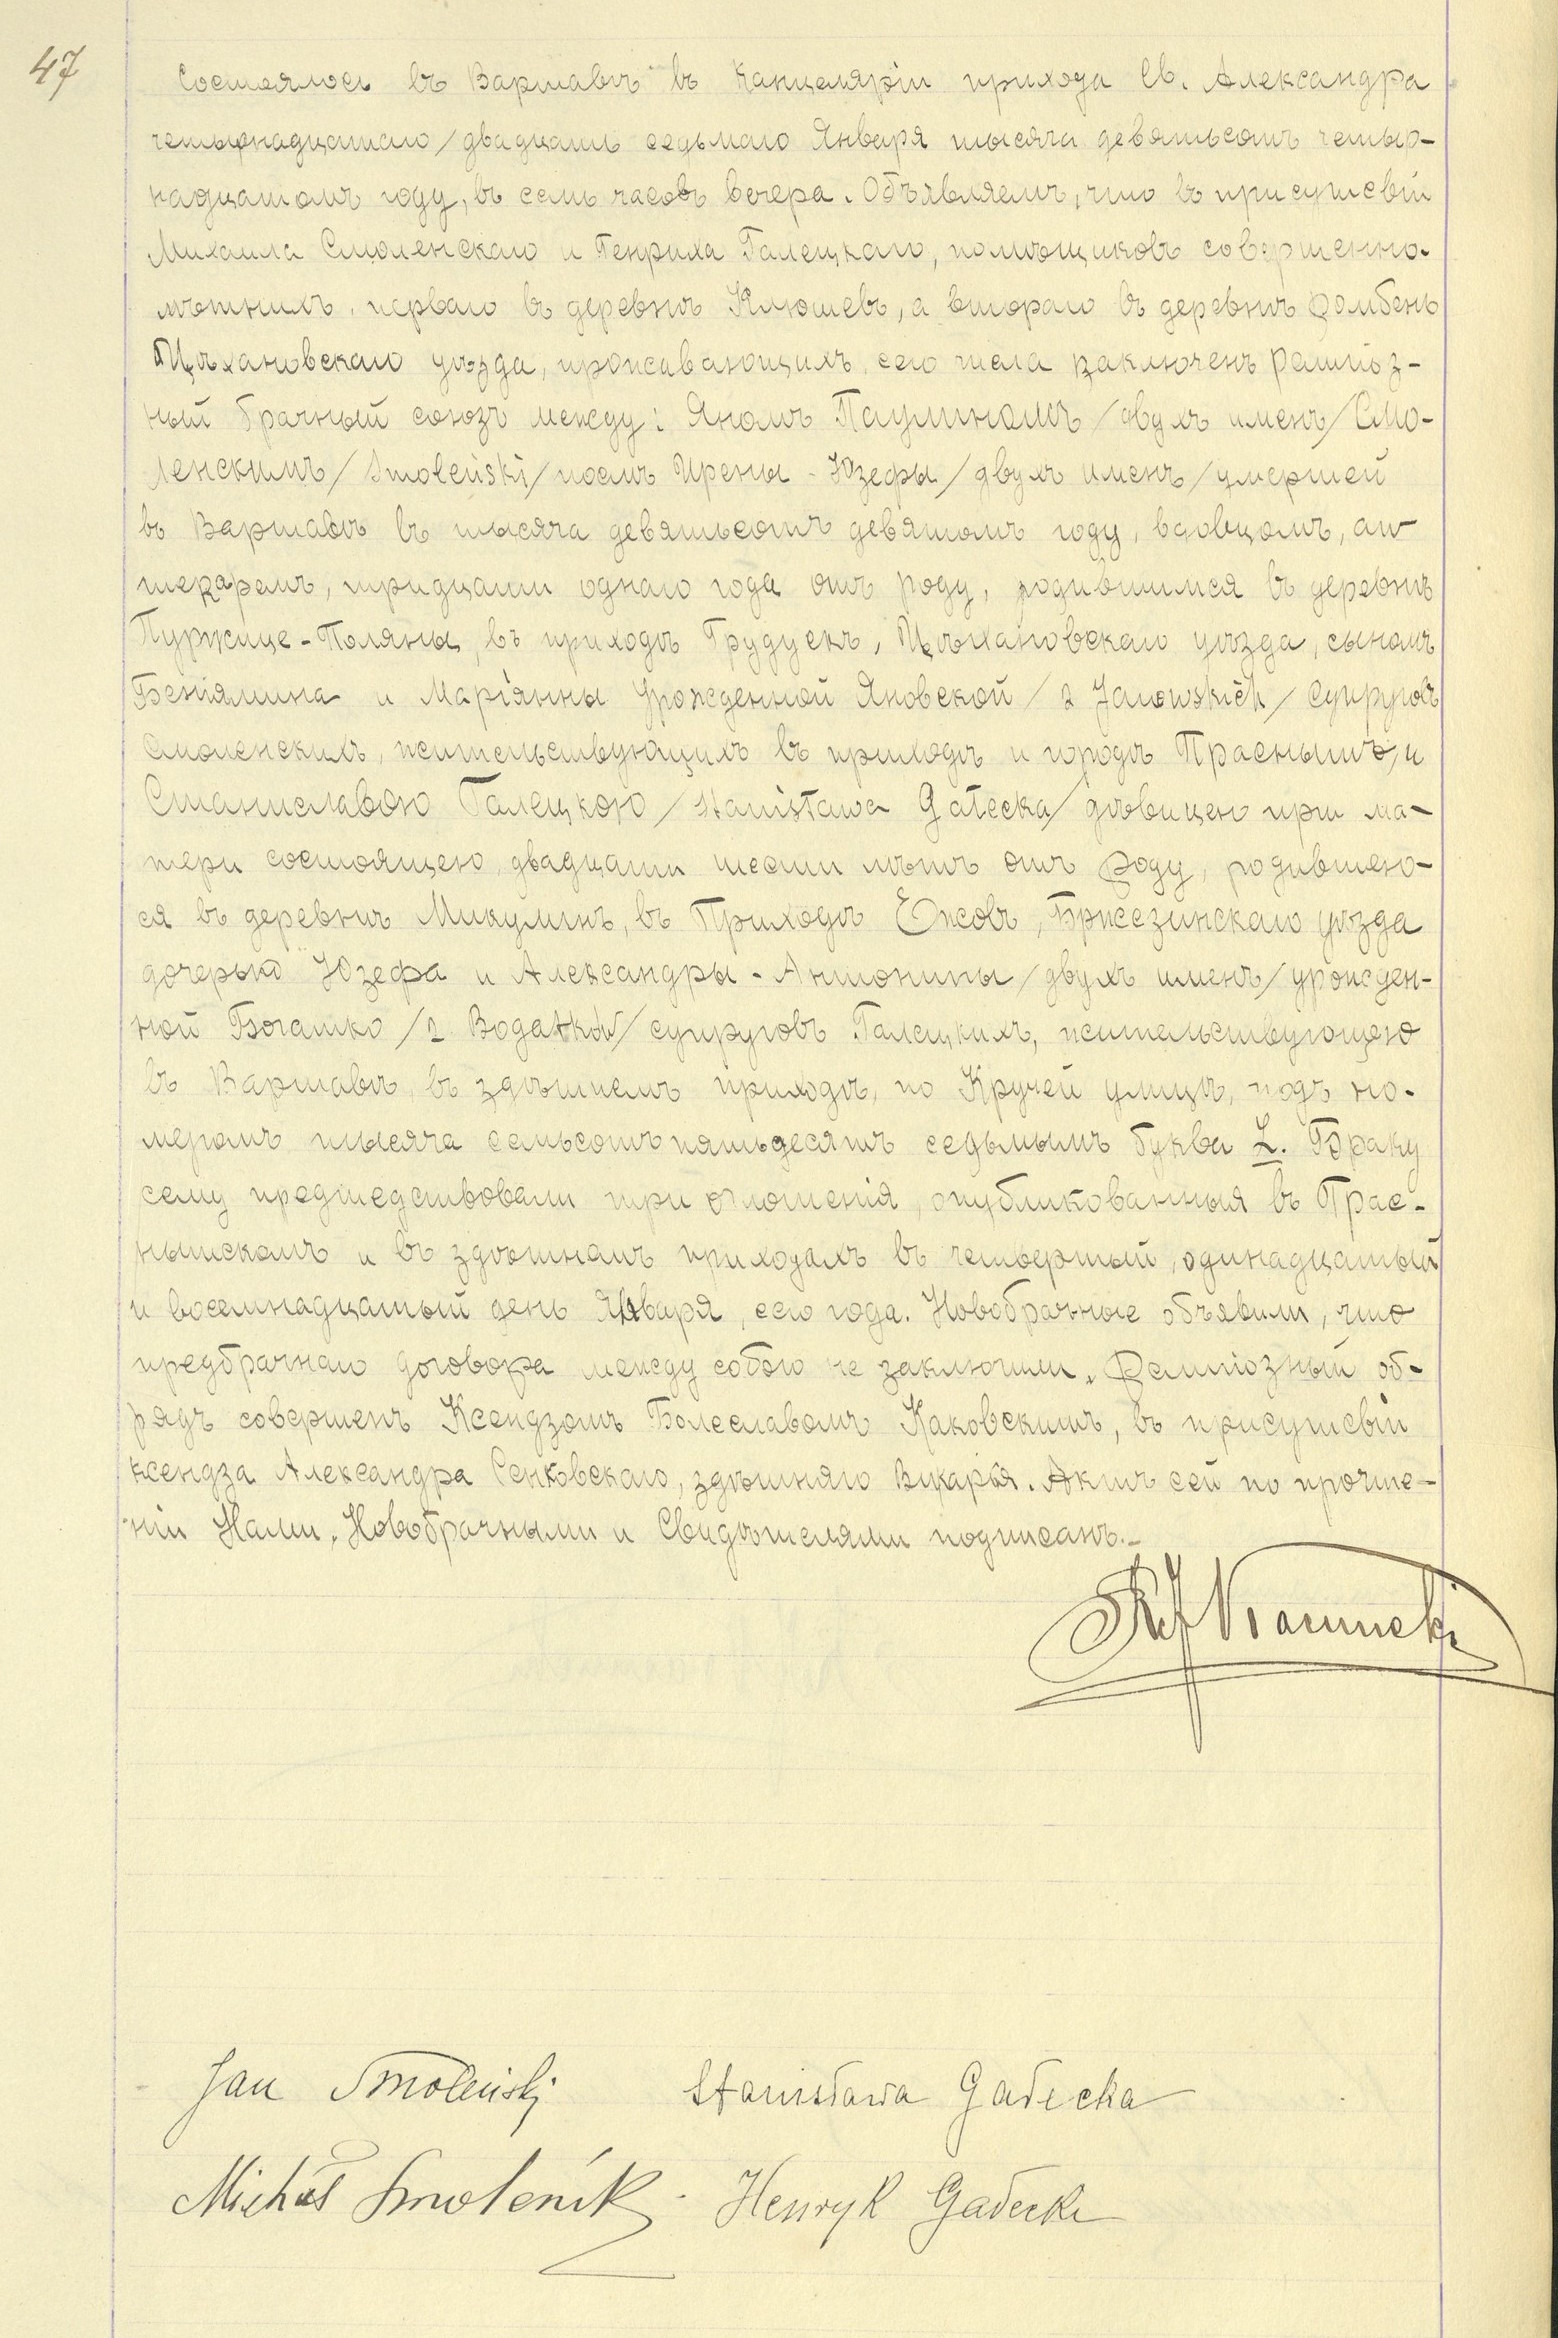 47
Состоялось въ Варшавѣ въ канцеляріи прихода Св. Александра
четырнадцатаго/двадцать седьмаго Января тысяча девятьсотъ четыр-
надцатомъ году, въ семь часовъ вечера. Объявляемъ, что въ присутствіи
Михаила Смоленскаго и Генриха Галецкаго, помѣщиковъ совершенно-
лѣтнихъ, перваго въ деревнѣ Клюшевъ, а втораго въ деревнѣ Ромбенъ
Цѣхановскаго уѣзда, проживающихъ, сего числа заключенъ религіоз-
ный брачный союзъ между: Яномъ Паулиномъ /двухъ именъ/ Смо-
ленскимъ /Smoleński/ послѣ Ирены-Юзефы /двухъ именъ/ умершей
въ Варшавѣ въ тысяча девятьсотъ девятомъ году, вдовцомъ, ап-
текаремъ, тридцати одного года отъ роду, родившимся въ деревнѣ
Пуржице-Поляны, въ приходѣ Грудускъ, Цѣхановскаго уѣзда, сыномъ
Беніямина и Маріянны урожденной Яновской /z Janowskich/ супруговъ
Смоленскихъ, жительствующихъ въ приходѣ и городѣ Праснышѣ, и
Станиславою Галецкою /Stanisława Gałecka/ дѣвицею при ма-
тери состоящею, двадцати шести лѣтъ отъ роду, родившею-
ся въ деревнѣ Микулинъ, въ Приходѣ Ежовъ, Бржезинскаго уѣзда
дочерью Юзефа и Александры-Антонины /двухъ именъ/ урожден-
ной Богатко /z Bogatków/ супруговъ Галецкихъ, жительствующею
въ Варшавѣ, въ здѣшнемъ приходѣ, по Кручей улицѣ, подъ но-
меромъ тысяча семьсотъ пятьдесятъ седьмымъ буква L. Браку
сему предшедствовали три оглошенія, опубликованныя въ Прас-
нышскомъ и въ здѣшномъ приходахъ въ четвертый, одинадцатый
и восемнадцатый день Января, сего года. Новобрачные объявили, что
предбрачнаго договора между собою не заключили. Религіозный об-
рядъ совершенъ Ксендзомъ Болеславомъ Каковскимъ, въ присутствіи
ксендза Александра Сенковскаго, здѣшняго Викарія. Актъ сей по прочте-
ніи Нами, Новобрачными и Свидѣтелями подписанъ.-
Jan Smoleński Stanisława Gałecka
Michał Smoleńsk Henryk Gałecki